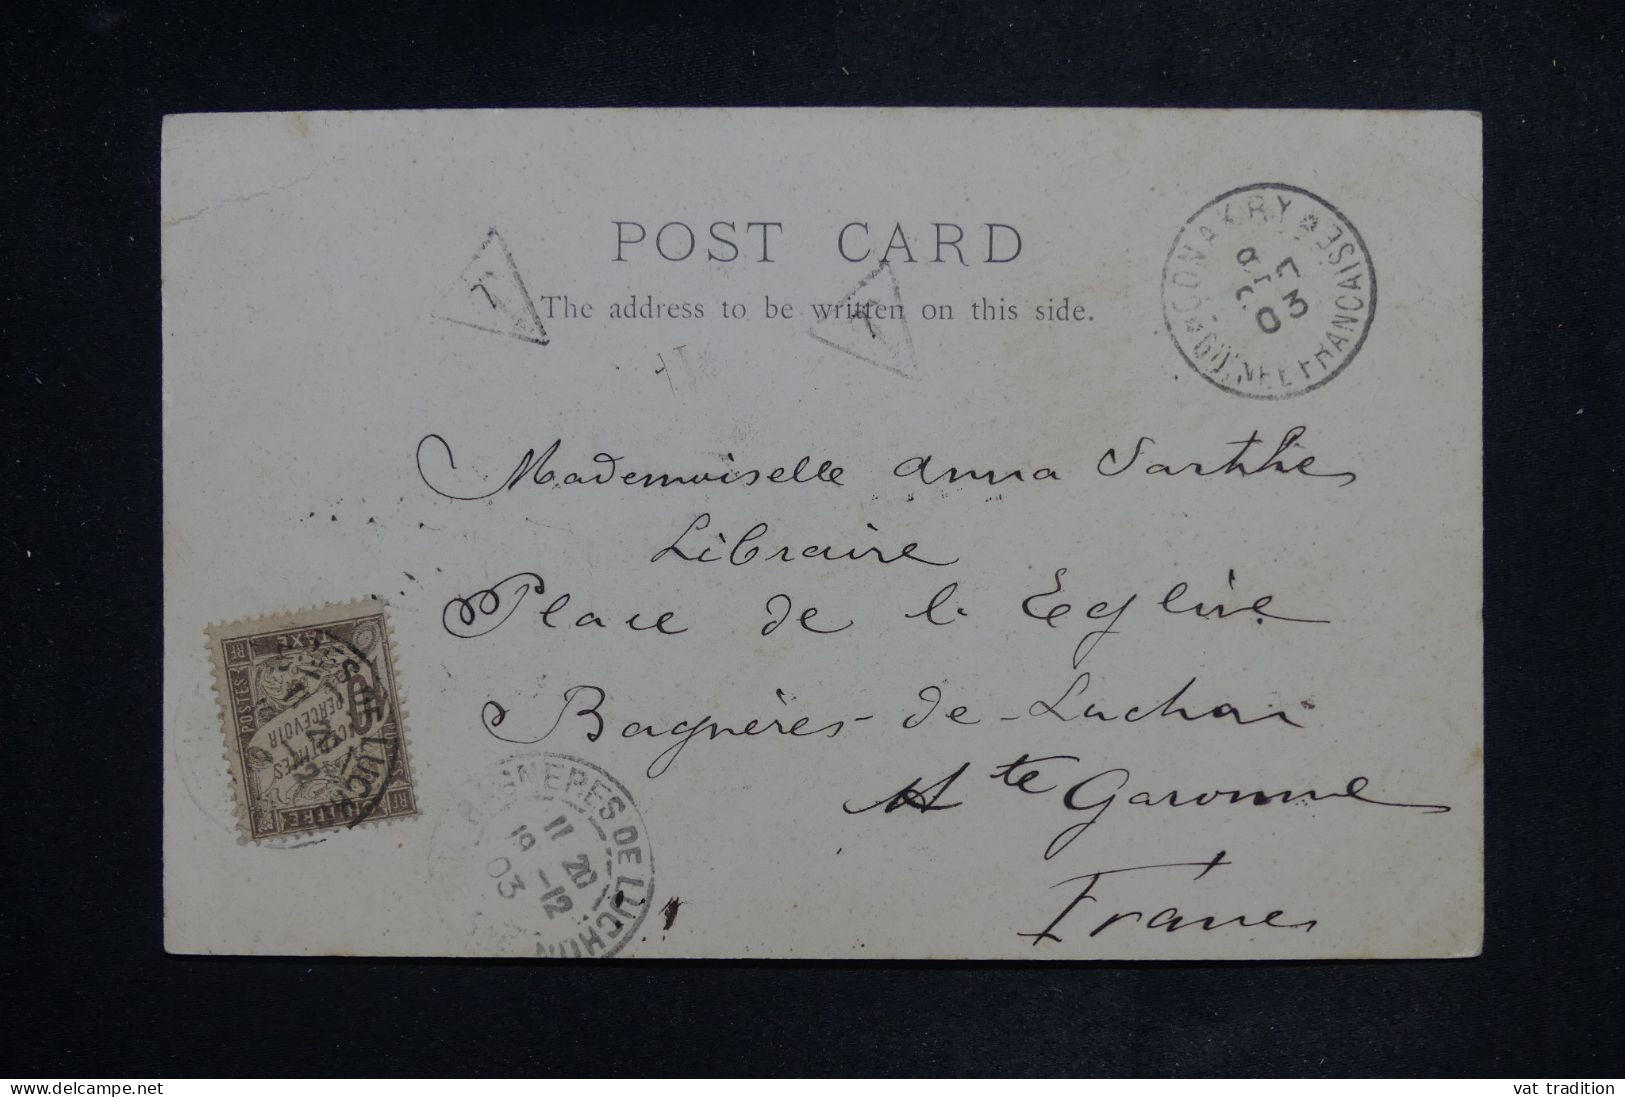 POST CARD
The address to be written on this side.
CONAKRY
GUINEE FRANCAISE
03
T
T
Mademoiselle Anna Sarthe
Libraire
Place de l. Eglise
Bagnères-de-Luchon
Hte Garonne
France
BAGNERES DE LUCHON
11 20
18 -12
03
CHIFFRE TAXE
POSTES
CENTIMES
PERCEVOIR
RF
S DE LUCH
www.delcampe.net
vat tradition